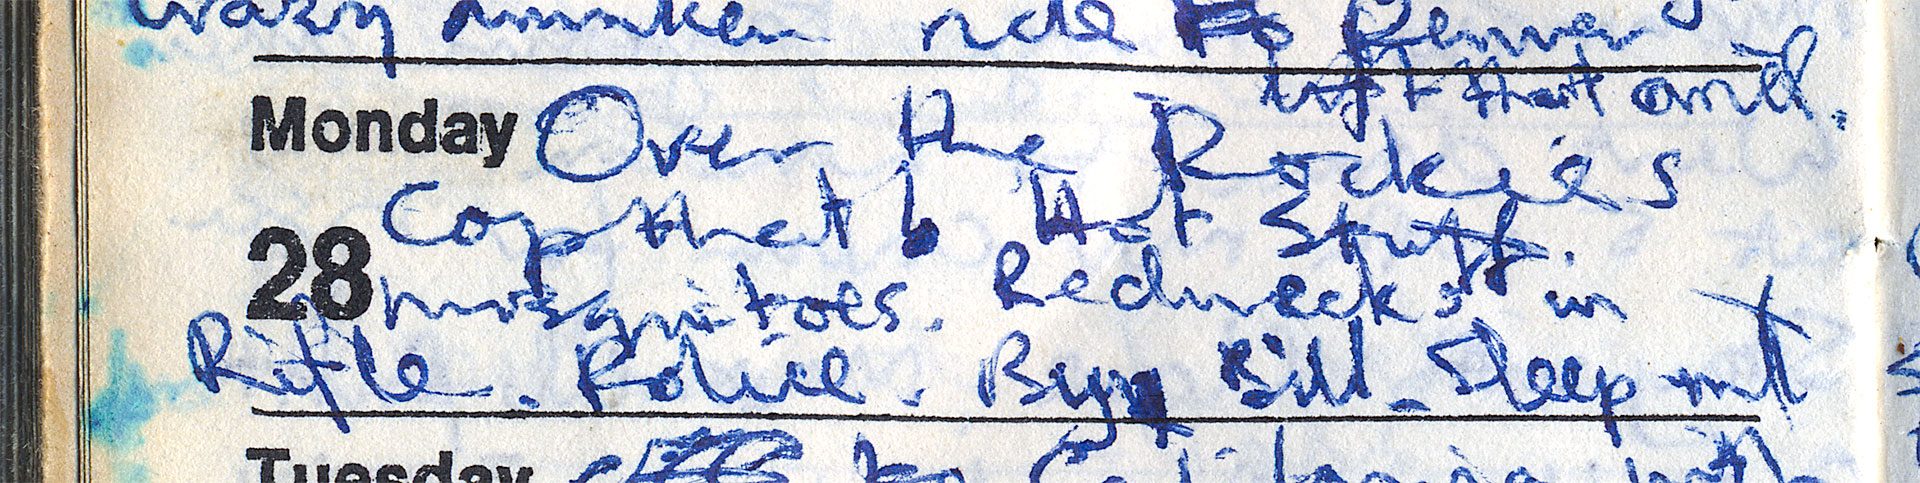 Crazy drunken ride to Denver
left that aml.
Monday Over the Rockies
Cop that ! Hot Stuff.
28 mosquitoes. Rednecks in
Rifle. Police. Bill. Sleep out
Tuesday to California with